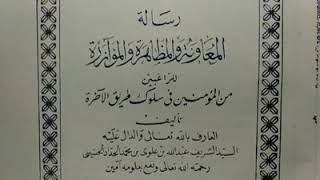 رسالة
المعاونة والمظاهرة والموازرة
للراغبين
من المؤمنين في سلوك طريق الآخرة
تأليف
العارف بالله تعالى والدال عليه
السيد الشريف عبدالله بن علوي بن محمد الحداد الحسيني
رحمه الله تعالى ونفع بعلومه آمين